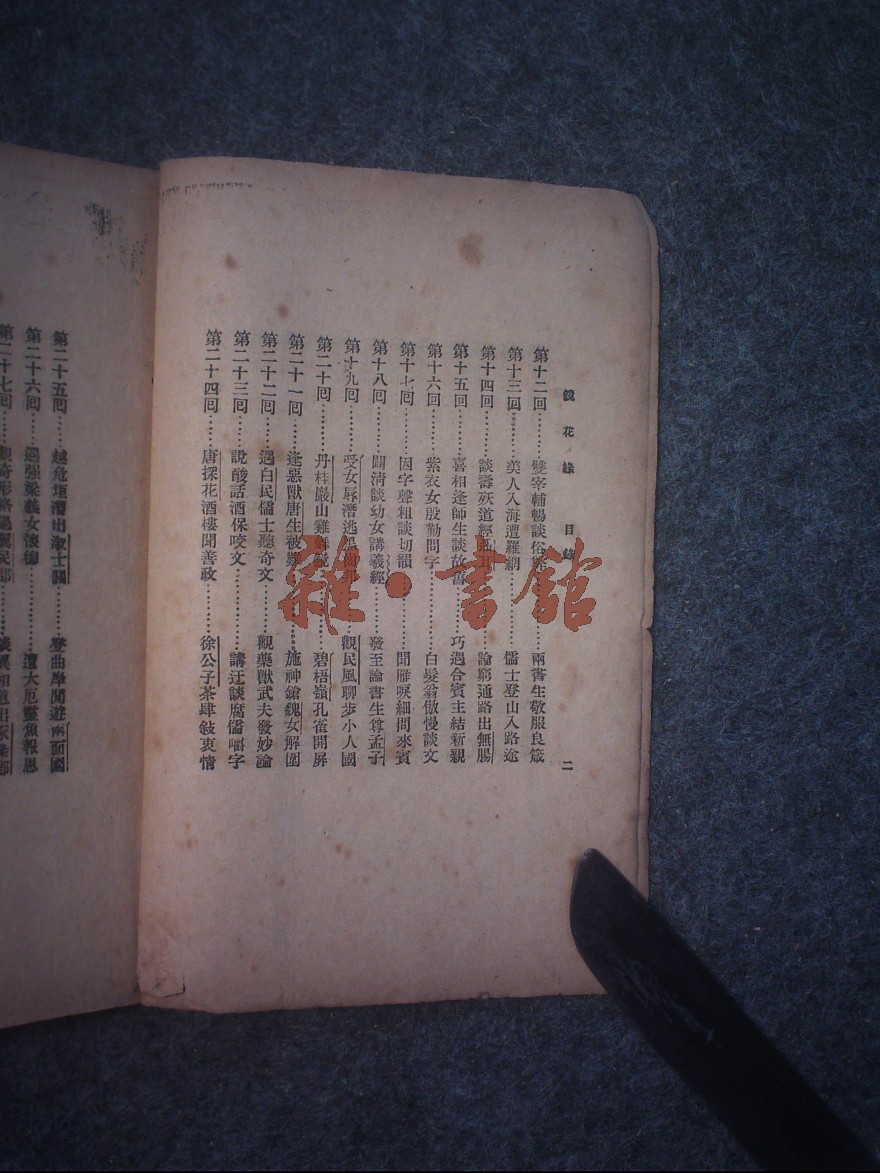 鏡花緣 目錄 二
第十二回………雙宰輔暢談俗弊………兩書生敬服良箴
第十三回………美人入海遭羅網………儒士登山入路途
第十四回………談壽殀道經聶耳………論窮通路出無腸
第十五回………喜相逢師生談故舊………巧遇合賓主結新親
第十六回………紫衣女殷勤問字………白髮翁傲慢談文
第十七回………因字聲粗談切韻………聞雁唳細問來賓
第十八回………闢清談幼女講羲經………發至論書生尊孟子
第十九回………受女辱潛逃黑齒邦………觀民風聊步小人國
第二十回………丹桂巖山雞舞鏡………碧梧嶺孔雀開屏
第二十一回……逢惡獸唐生被難………施神鎗魏女解圍
第二十二回……遇白民儒士聽奇文………觀藥獸武夫發妙論
第二十三回……說酸話酒保咬文………講迂談腐儒嚼字
第二十四回……唐探花酒樓聞善政………徐公子茶肆敍衷情
第二十五回……越危垣潛出淑士關………登曲岸閒遊兩面國
第二十六回……遇强梁義女懷德………遭大厄靈魚報恩
第二十七回……觀奇形路過翼民郡
雜·書館